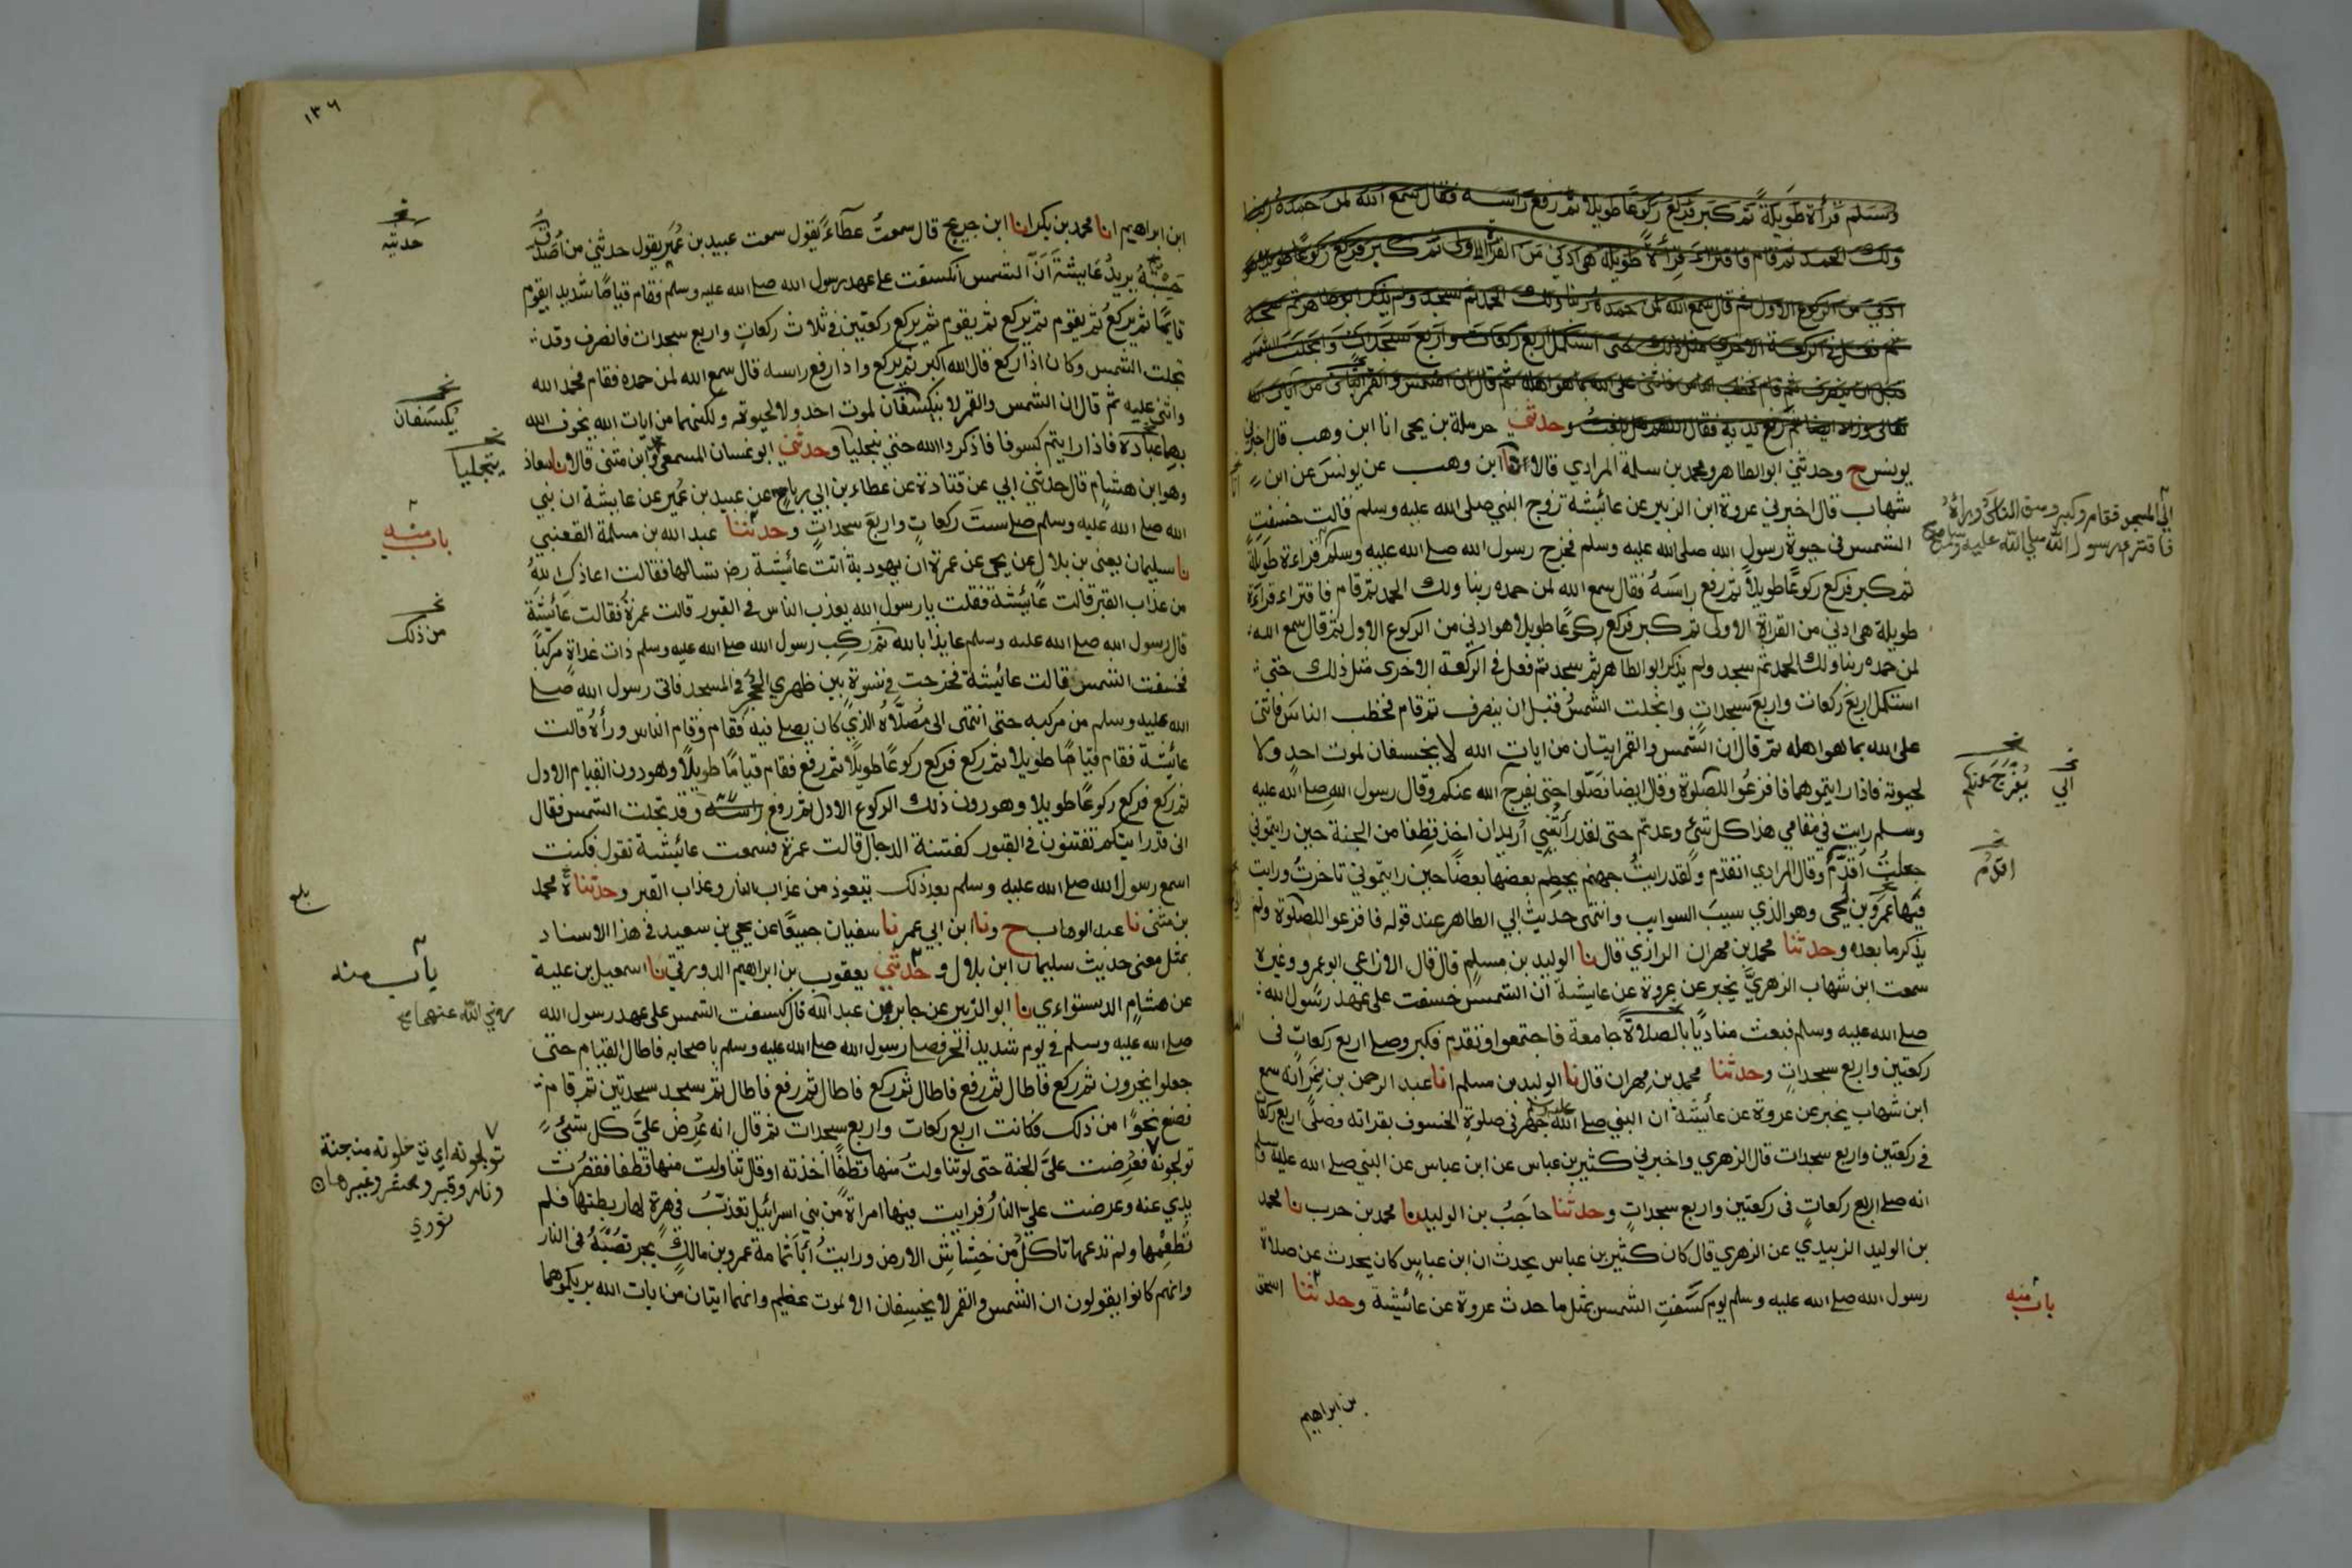 وسلم قرأة طويلة ثم كبر فركع ركوعا طويلا ثم رفع راسه فقال سمع الله لمن حمده ربنا
ولك الحمد ثم قام فاقترأ قرأة طويلة هي ادني من القرأة الاولى ثم كبر فركع ركوعا طويلا هو
ادني من الركوع الاول ثم قال سمع الله لمن حمده ربنا ولك الحمد ثم سجد ولم يذكر ابو طاهر ثم سجد
ثم فعل في الركعة الاخري مثل ذلك حتى استكمل اربع ركعات واربع سجدات وانجلت الشمس
قبل ان ينصرف ثم قام فخطب الناس فاثنى على الله بما هو اهله ثم قال ان الشمس والقمر ايتان من آيات الله
وحدثني حرملة بن يحى انا ابن وهب قال اخبرني
يونس ح وحدثني ابو الطاهر ومحمد بن سلمة المرادي قالا نا ابن وهب عن يونس عن ابن
شهاب قال اخبرني عروة ابن الزبير عن عائشة زوج النبي صلى الله عليه وسلم قالت خسفت
الشمس في حيوة رسول الله صلى الله عليه وسلم فخرج رسول الله صلى الله عليه وسلم قراءة طويلة
ثم كبر فركع ركوعا طويلا ثم رفع راسه فقال سمع الله لمن حمده ربنا ولك الحمد ثم قام فاقتراء قراءة
طويلة هي ادني من القراة الاولى ثم كبر فركع ركوعا طويلا هو ادني من الركوع الاول ثم قال سمع الله
لمن حمده ربنا ولك الحمد ثم سجد ولم يذكر ابو الطاهر ثم سجد ثم فعل في الركعة الاخرى مثل ذلك حتى
استكمل اربع ركعات واربع سجدات وانجلت الشمس قبل ان ينصرف ثم قام فخطب الناس فاثنى
على الله بما هو اهله ثم قال ان الشمس والقمر ايتان من ايات الله لا يخسفان لموت احد ولا
لحيوته فاذا رايتموهما فافزعوا للصلوة وقال ايضا فصلوا حتى يفرج الله عنكم وقال رسول الله صلى الله عليه
وسلم رايت في مقامي هذا كل شئ وعدتم حتى لقد رأيتني أريد ان اخذ قطفا من الجنة حين رايتموني
جعلت أقدم وقال المرادي اتقدم ولقد رايت جهنم يحطم بعضها بعضا حين رايتموني تاخرت ورايت
فيها عمرو بن لحي وهو الذي سيب السوايب وانتهى حديث ابي الطاهر عند قوله فافزعوا للصلوة ولم
يذكر ما بعده وحدثنا محمد بن مهران الرازي قال نا الوليد بن مسلم قال قال الاوزاعي ابو عمرو وغيره
سمعت ابن شهاب الزهري يخبر عن عروة عن عايشة ان الشمس خسفت على عهد رسول الله
صلى الله عليه وسلم فبعث مناديا بالصلاة جامعة فاجتمعوا وتقدم فكبر وصلى اربع ركعات في
ركعتين واربع سجدات وحدثنا محمد بن مهران قال نا الوليد بن مسلم انا عبد الرحمن بن نمر انه سمع
ابن شهاب يخبر عن عروة عن عائشة ان النبي صلى الله عليه وسلم جهر في صلوة الخسوف بقراته وصلى اربع ركعات
في ركعتين واربع سجدات قال الزهري واخبرني كثير بن عباس عن ابن عباس عن النبي صلى الله عليه وسلم
انه صلى اربع ركعات في ركعتين واربع سجدات وحدثنا حاجب بن الوليد نا محمد بن حرب نا محمد
بن الوليد الزبيدي عن الزهري قال كان كثير بن عباس يحدث ان ابن عباس كان يحدث عن صلاة
رسول الله صلى الله عليه وسلم يوم كسفت الشمس بمثل ما حدث عروة عن عائشة وحدثنا اسحق
بن ابراهيم
الى المسجد فقام وكبر وصف الناس وراءه
فاقترء رسول الله صلى الله عليه وسلم صح
يفرج عنكم
اني
اقدم
باب منه
١٣٦
ابن ابراهيم انا محمد بن بكر انا ابن جريج قال سمعت عطاء يقول سمعت عبيد بن عمير يقول حدثني من اصدق
حسبته يريد عايشة أن الشمس انكسفت على عهد رسول الله صلى الله عليه وسلم فقام قياما شديدا يقوم
قايما ثم يركع ثم يقوم ثم يركع ثم يقوم ثم يركع ركعتين في ثلاث ركعات واربع سجدات فانصرف وقد
تجلت الشمس وكان اذا ركع قال الله اكبر ثم يركع واذا رفع راسه قال سمع الله لمن حمده فقام فحمد الله
واثنى عليه ثم قال ان الشمس والقمر لا ينكسفان لموت احد ولا لحيوته ولكنهما من ايات الله يخوف الله
بهما عباده فاذا رايتم كسوفا فاذكروا الله حتى ينجليا وحدثني ابو غسان المسمعي وابن مثنى قالا نا معاذ
وهو ابن هشام قال حدثني ابي عن قتادة عن عطاء بن ابي رباح عن عبيد بن عمير عن عايشة ان نبي
الله صلى الله عليه وسلم صلى ست ركعات واربع سجدات وحدثنا عبد الله بن مسلمة القعنبي
نا سليمان يعني بن بلال عن يحي عن عمرة ان يهودية اتت عائشة رض تسالها فقالت اعاذك الله
من عذاب القبر قالت عائشة فقلت يا رسول الله يعذب الناس في القبور قالت عمرة فقالت عائشة
قال رسول الله صلى الله عليه وسلم عايذا بالله ثم ركب رسول الله صلى الله عليه وسلم ذات غداة مركبا
فخسفت الشمس قالت عائيشة فخرجت في نسوة بين ظهري الحجر في المسجد فاتى رسول الله صلى
الله عليه وسلم من مركبه حتى انتهى الى مصلاه الذي كان يصلي فيه فقام وقام الناس ورأه قالت
عائيشة فقام قياما طويلا ثم ركع فركع ركوعا طويلا ثم رفع فقام قياما طويلا وهو دون القيام الاول
ثم ركع فركع ركوعا طويلا وهو دون ذلك الركوع الاول ثم رفع راسه وقد تجلت الشمس فقال
اني قد رايتكم تفتنون في القبور كفتنة الدجال قالت عمرة فسمعت عائيشة تقول فكنت
اسمع رسول الله صلى الله عليه وسلم بعد ذلك يتعوذ من عذاب النار وعذاب القبر وحدثناه محمد
بن مثنى نا عبد الوهاب ح ونا ابن ابي عمر نا سفيان جميعا عن يحي بن سعيد في هذا الاسناد
بمثل معنى حديث سليمان ابن بلال وحدثني يعقوب بن ابراهيم الدورقي نا اسمعيل بن علية
عن هشام الدستواءي نا ابو الزبير عن جابر بن عبد الله قال كسفت الشمس على عهد رسول الله
صلى الله عليه وسلم في يوم شديد الحر فصلى رسول الله صلى الله عليه وسلم باصحابه فاطال القيام حتى
جعلوا يخرون ثم ركع فاطال ثم رفع فاطال ثم ركع فاطال ثم رفع فاطال ثم سجد سجدتين ثم قام
فصنع نحوا من ذلك فكانت اربع ركعات واربع سجدات ثم قال انه عرض علي كل شئ
تولجونه فعرضت علي الجنة حتى لو تناولت منها قطفا اخذته او قال تناولت منها قطفا فقصرت
يدي عنه وعرضت علي النار فرايت فيها امراة من بني اسرائيل تعذب في هرة لها ربطتها فلم
تطعمها ولم تدعها تاكل من خشاش الارض ورايت أبا ثمامة عمرو بن مالك يجر قصبه في النار
وانهم كانوا يقولون ان الشمس والقمر لا يخسفان الا لموت عظيم وانهما ايتان من ايات الله يريكموهما
حدثته
يكسفان
ينجليا
باب منه
من ذلك
بلغ
باب منه
رضي الله عنهما صح
تولجونه اي تدخلونه من جنة
ونار وقبر ومحشر وغيرها
نووي